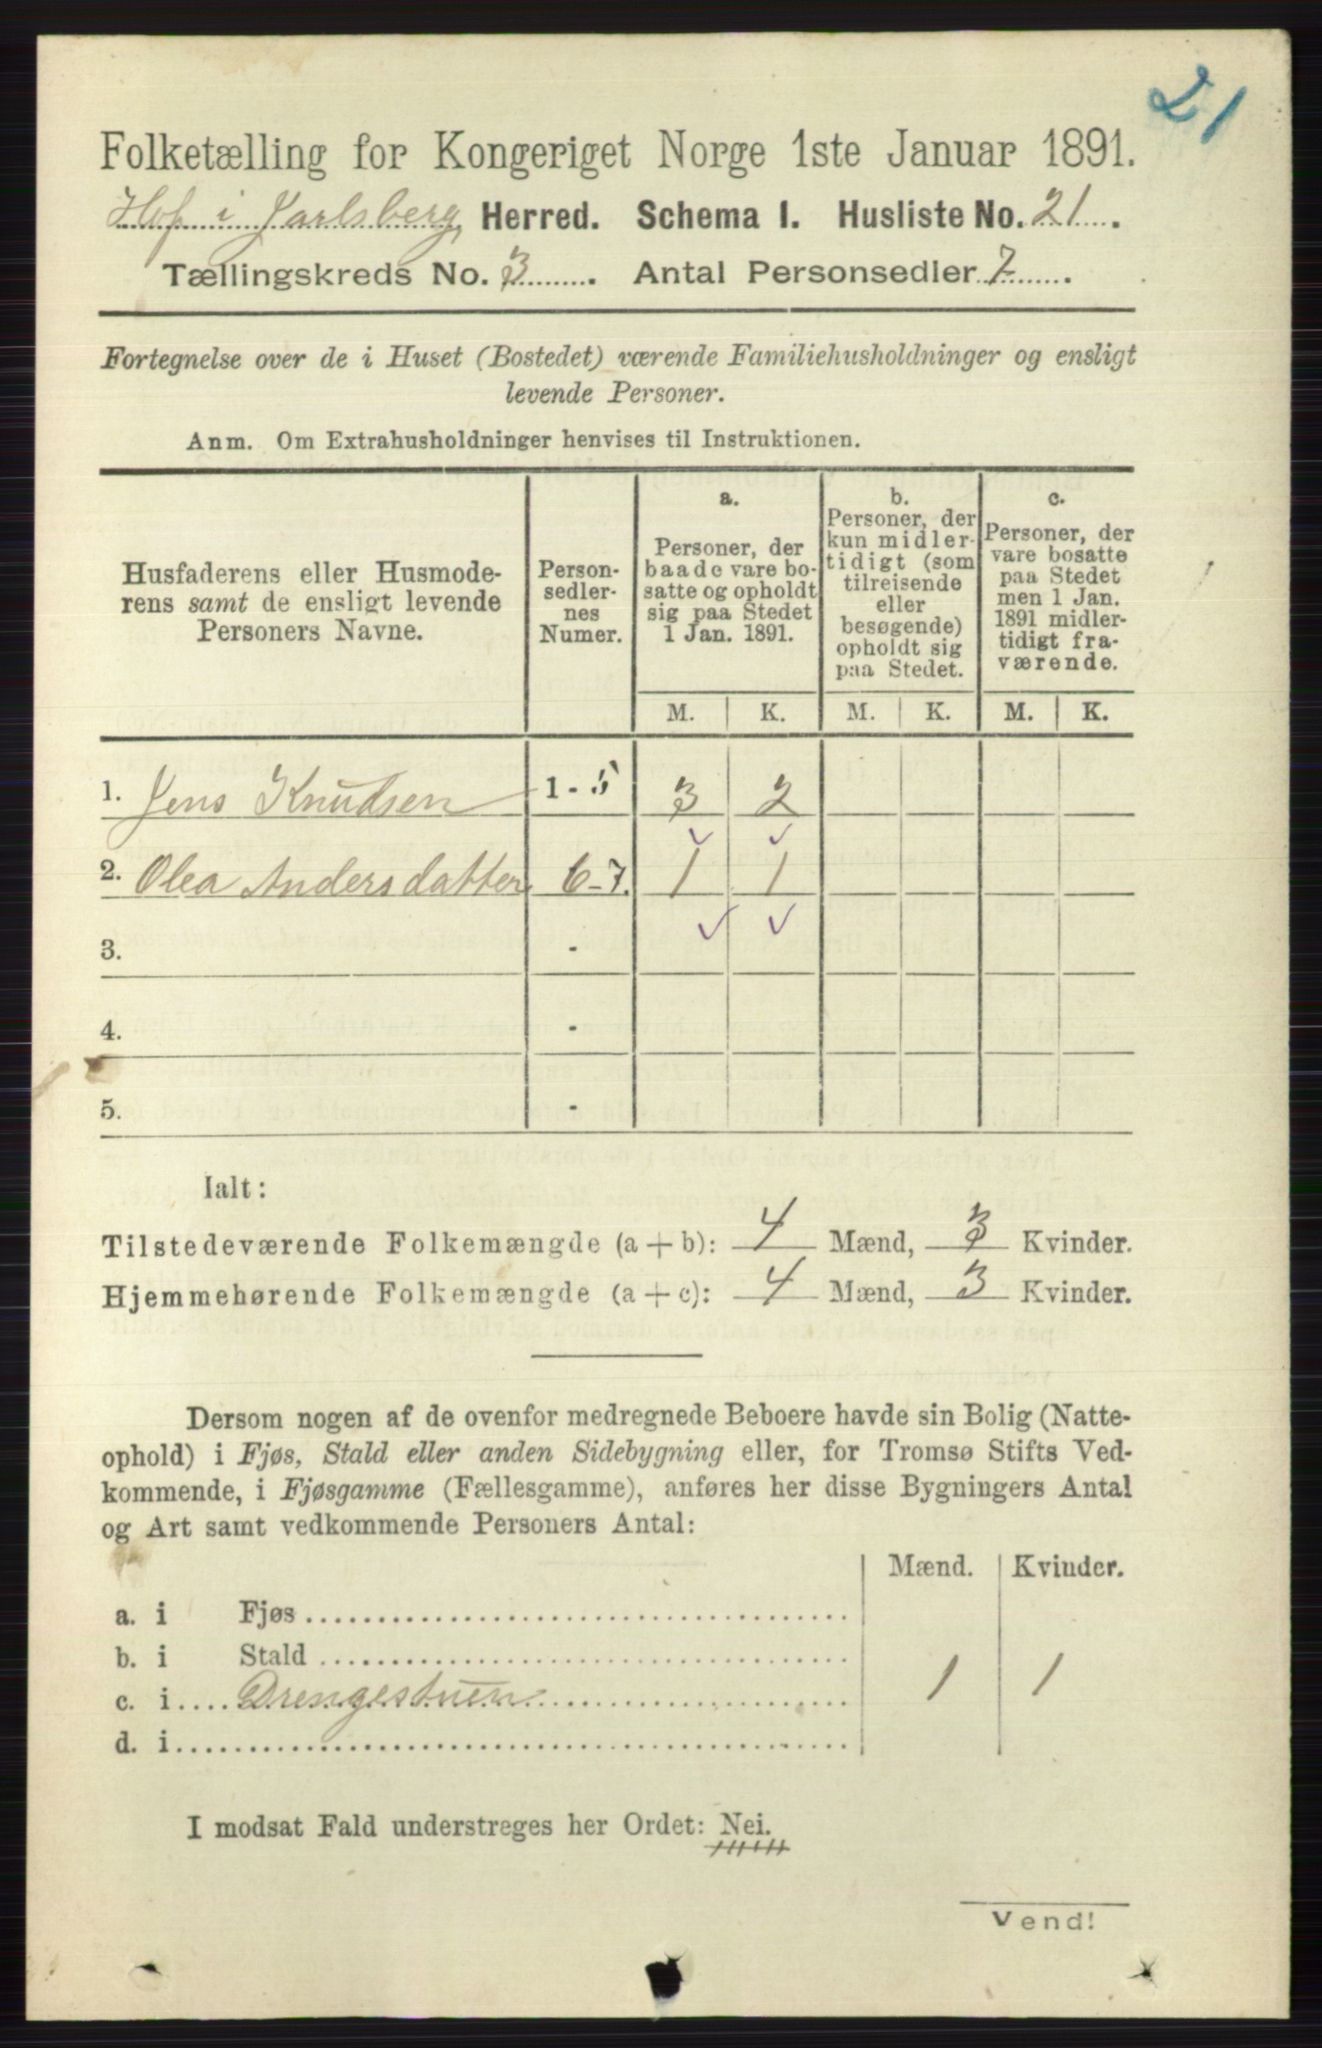 21
Folketælling for Kongeriget Norge 1ste Januar 1891.
Hof i Jarlsberg Herred. Schema 1. Husliste No. 21.
Tællingskreds No. 3. Antal Personsedler 7.
Fortegnelse over de i Huset (Bostedet) værende Familiehusholdninger og ensligt
levende Personer.
Anm. Om Extrahusholdninger henvises til Instruktionen.
Husfaderens eller Husmode-
rens samt de ensligt levende
Personers Navne.
Person-
sedler-
nes
Numer.
a.
Personer, der
baade vare bo-
satte og opholdt
sig paa Stedet
1 Jan. 1891.
b.
Personer, der
kun midler-
tidigt (som
tilreisende
eller
besøgende)
opholdt sig
paa Stedet.
c.
Personer, der
vare bosatte
paa Stedet
men 1 Jan.
1891 midler-
tidigt fra-
værende.
M. K. M. K. M. K.
1. Jens Knudsen 1-5 3 2
2. Olea Andersdatter 6-7. 1 1
3. -
4. -
5. -
Ialt:
Tilstedeværende Folkemængde (a+b): 4 Mænd, 3 Kvinder.
Hjemmehørende Folkemængde (a+c): 4 Mænd, 3 Kvinder.
Dersom nogen af de ovenfor medregnede Beboere havde sin Bolig (Natte-
ophold) i Fjøs, Stald eller anden Sidebygning eller, for Tromsø Stifts Ved-
kommende, i Fjøsgamme (Fællesgamme), anføres her disse Bygningers Antal
og Art samt vedkommende Personers Antal:
Mænd. Kvinder.
a. i Fjøs
b. i Stald
c. i Drengestuen 1 1
d. i
I modsat Fald understreges her Ordet: Nei.
Vend!